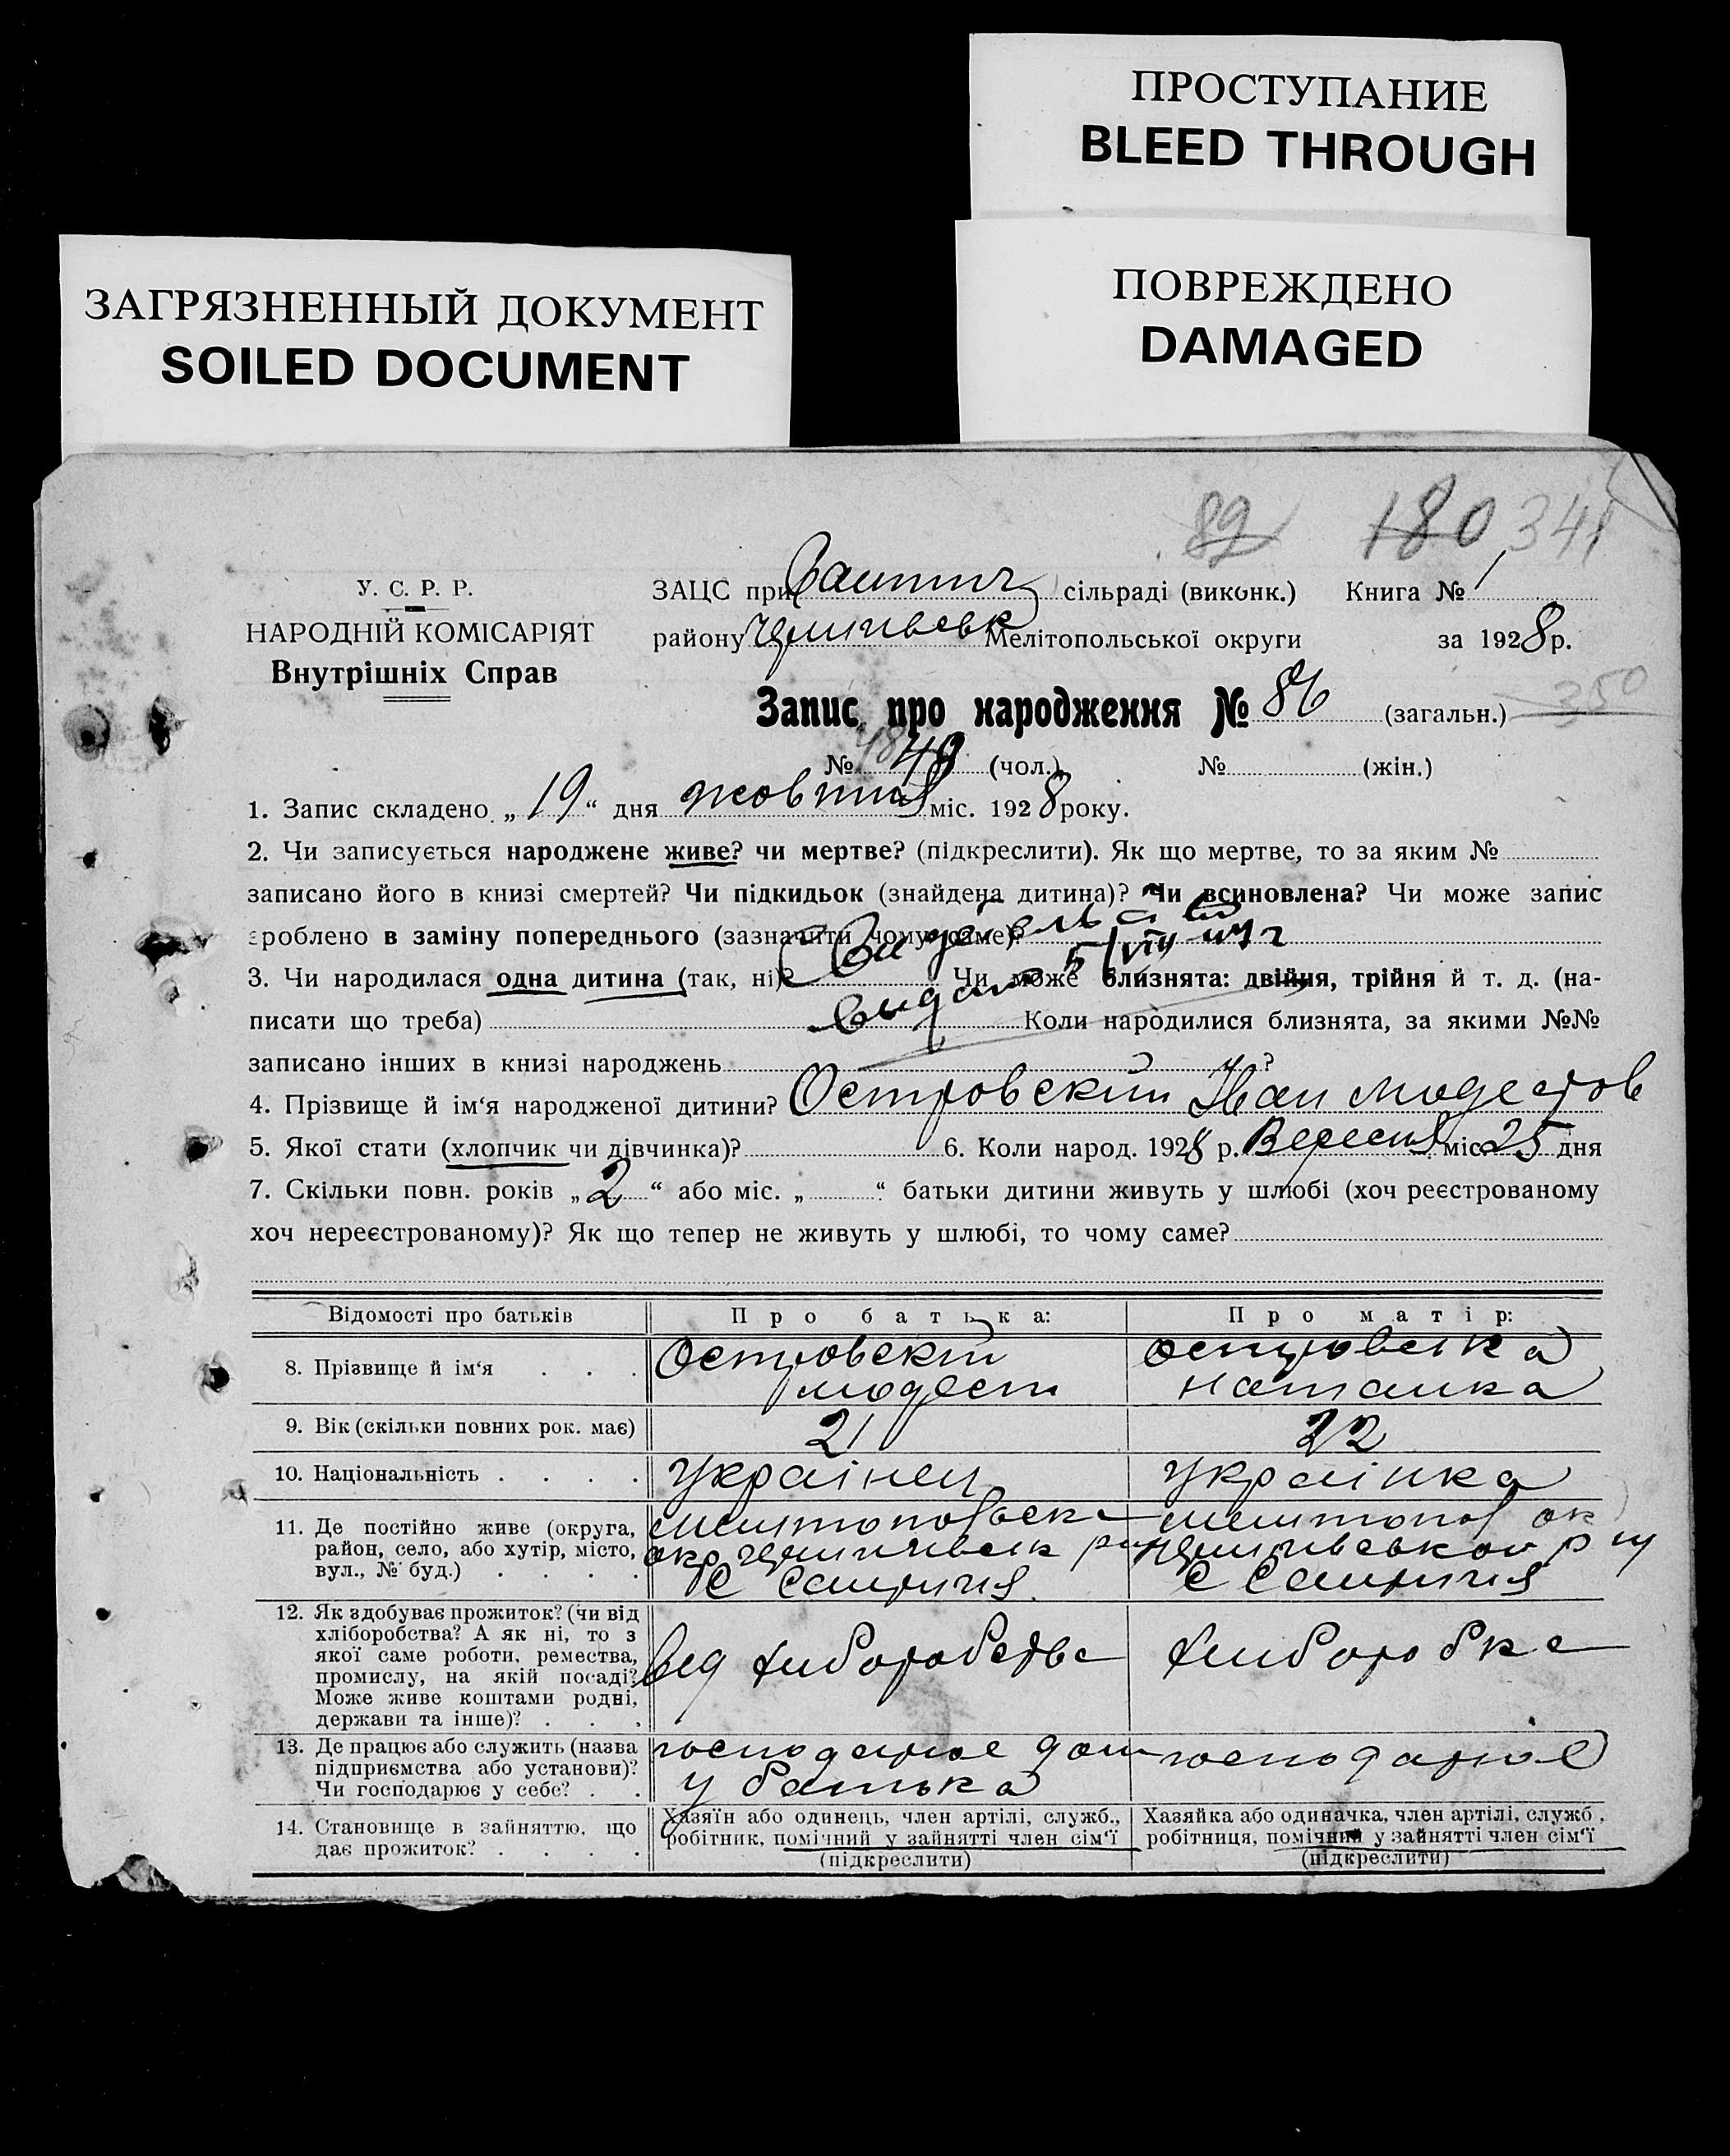 ПРОСТУПАНИЕ
BLEED THROUGH
ЗАГРЯЗНЕННЫЙ ДОКУМЕНТ
SOILED DOCUMENT
ПОВРЕЖДЕНО
DAMAGED
89 180 341
У. С. Р. Р.
НАРОДНІЙ КОМІСАРІЯТ
Внутрішніх Справ
ЗАЦС при сільраді (виконк.) Книга № 1
району Мелітопольської округи за 1928 р.
Запис про народження № 86 (загальн.) 350
№ 48 (чол.) № (жін.)
1. Запис складено „ 19 “ дня жовтня міс. 1928 року.
2. Чи записується народжене живе? чи мертве? (підкреслити). Як що мертве, то за яким №
записано його в книзі смертей? Чи підкидьок (знайдена дитина)? Чи всиновлена? Чи може запис
зроблено в заміну попереднього (зазначити чому саме)?
3. Чи народилася одна дитина (так, ні)? Чи може близнята: двійня, трійня й т. д. (на-
писати що треба) Коли народилися близнята, за якими №№
записано інших в книзі народжень ?
4. Прізвище й ім‘я народженої дитини? Островский Іван Модестов
5. Якої стати (хлопчик чи дівчинка)? 6. Коли народ. 1928 р. Вересня міс. 25 дня
7. Скільки повн. років „ 2 “ або міс. „ “ батьки дитини живуть у шлюбі (хоч реєстрованому
хоч нереєстрованому)? Як що тепер не живуть у шлюбі, то чому саме?
Відомості про батьків Про батька: Про матір:
8. Прізвище й ім‘я . . . Островский Модест Островска Наталка
9. Вік (скільки повних рок. має) 21 22
10. Національність . . . . Українец Українка
11. Де постійно живе (округа,
район, село, або хутір, місто,
вул., № буд.) . . . .
12. Як здобуває прожиток? (чи від
хліборобства? А як ні, то з
якої саме роботи, ремества,
промислу, на якій посаді?
Може живе коштами родні,
держави та інше)? . . .
вед хлиборобства хлиборобка
13. Де працює або служить (назва
підприємства або установи)?
Чи господарює у себе? . .
господарює
у батька господарює
14. Становище в зайняттю, що
дає прожиток? . . . .
Хазяїн або одинець, член артілі, служб.,
робітник, помічний у зайнятті член сім‘ї
(підкреслити)
Хазяйка або одиначка, член артілі, служб.,
робітниця, помічний у зайнятті член сім‘ї
(підкреслити)